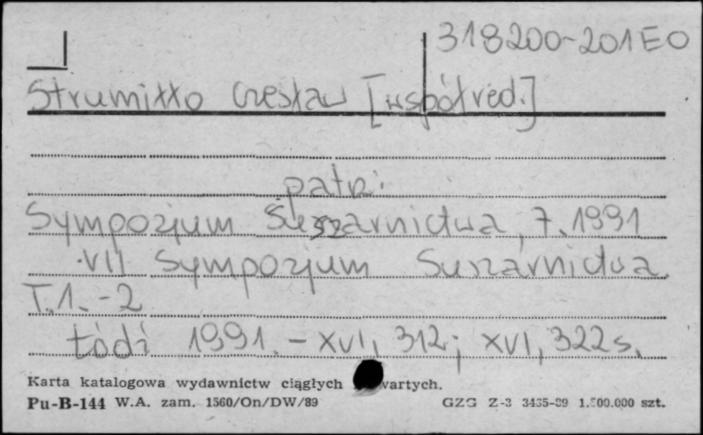 318200-201EO
Strumiłło Czesław [współred.]
patrz:
Sympozjum Suszarnictwa, 7. 1991
VII Sympozjum Suszarnictwa.
T. 1. - 2
Łódź 1991. - XVI, 312; XVI, 322 s.
Karta katalogowa wydawnictw ciągłych
Pu-B-144 W.A. zam. 1560/On/DW/89 GZG Z-3 3435-89 1.500.000 szt.